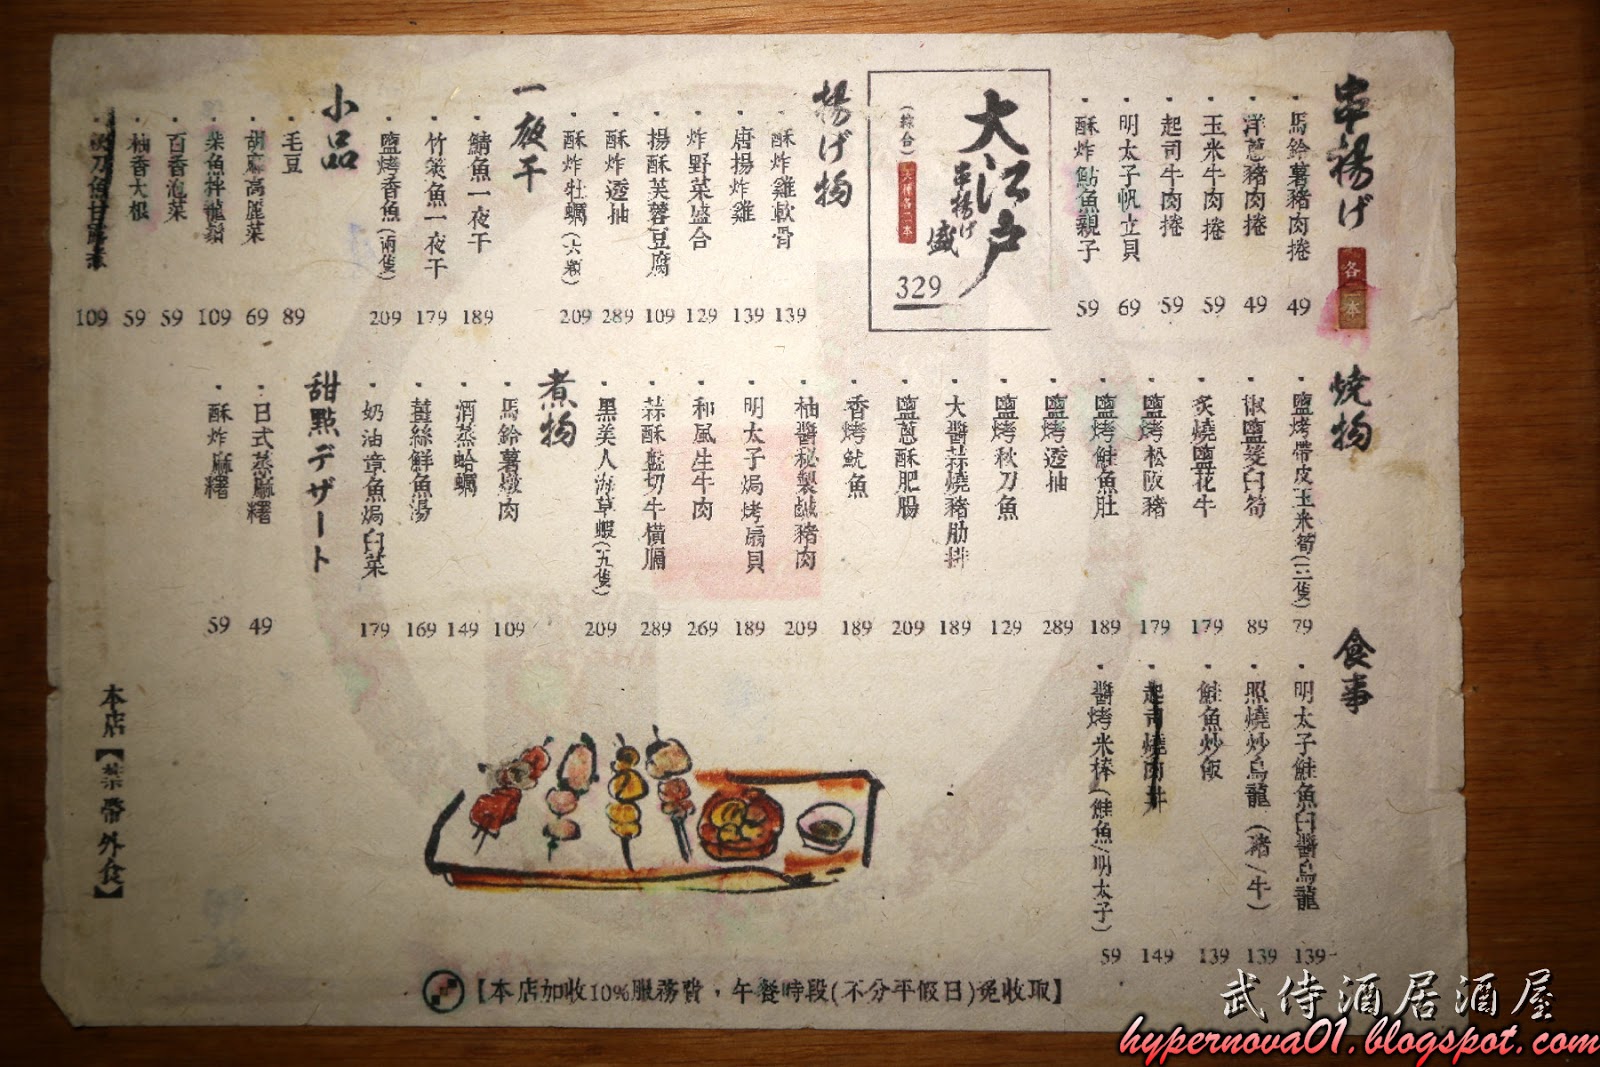 串揚げ 各一本
・馬鈴薯豬肉捲 49
・洋蔥豬肉捲 49
・玉米牛肉捲 59
・起司牛肉捲 59
・明太子帆立貝 69
・酥炸鮎魚親子 59
大江戶
串揚げ
盛
(綜合)
329
揚げ物
・酥炸雞軟骨 139
・唐揚炸雞 139
・炸野菜盛合 129
・揚酥芙蓉豆腐 109
・酥炸透抽 289
・酥炸牡蠣(六顆) 209
一夜干
・鯖魚一夜干 189
・竹筴魚一夜干 179
・鹽烤香魚(兩隻) 209
小品
・毛豆 89
・胡麻高麗菜 69
・柴魚拌龍鬚 109
・百香泡菜 59
・柚香大根 59
・秋刀魚甘露煮 109
燒物
・鹽烤帶皮玉米筍(三隻) 79
・椒鹽茭白筍 89
・炙燒鹽花牛 179
・鹽烤松阪豬 179
・鹽烤鮭魚肚 189
・鹽烤透抽 289
・鹽烤秋刀魚 129
・大醬蒜燒豬肋排 189
・鹽蔥酥肥腸 209
・香烤魷魚 189
・柚醬秘製鹹豬肉 209
・明太子焗烤扇貝 189
・和風生牛肉 269
・蒜酥骰切牛橫膈 289
・黑美人海草蝦(五隻) 209
煮物
・馬鈴薯燉肉 109
・酒蒸蛤蠣 149
・薑絲鮮魚湯 169
・奶油章魚焗白菜 179
甜點デザート
・日式蒸麻糬 49
・酥炸麻糬 59
食事
・明太子鮭魚白醬烏龍 139
・照燒炒烏龍(豬/牛) 139
・鮭魚炒飯 139
・起司燒肉丼 149
・醬烤米棒(鮭魚/明太子) 59
本店【禁帶外食】
【本店加收10%服務費,午餐時段(不分平假日)免收取】
武侍酒居酒屋
hypernova01.blogspot.com